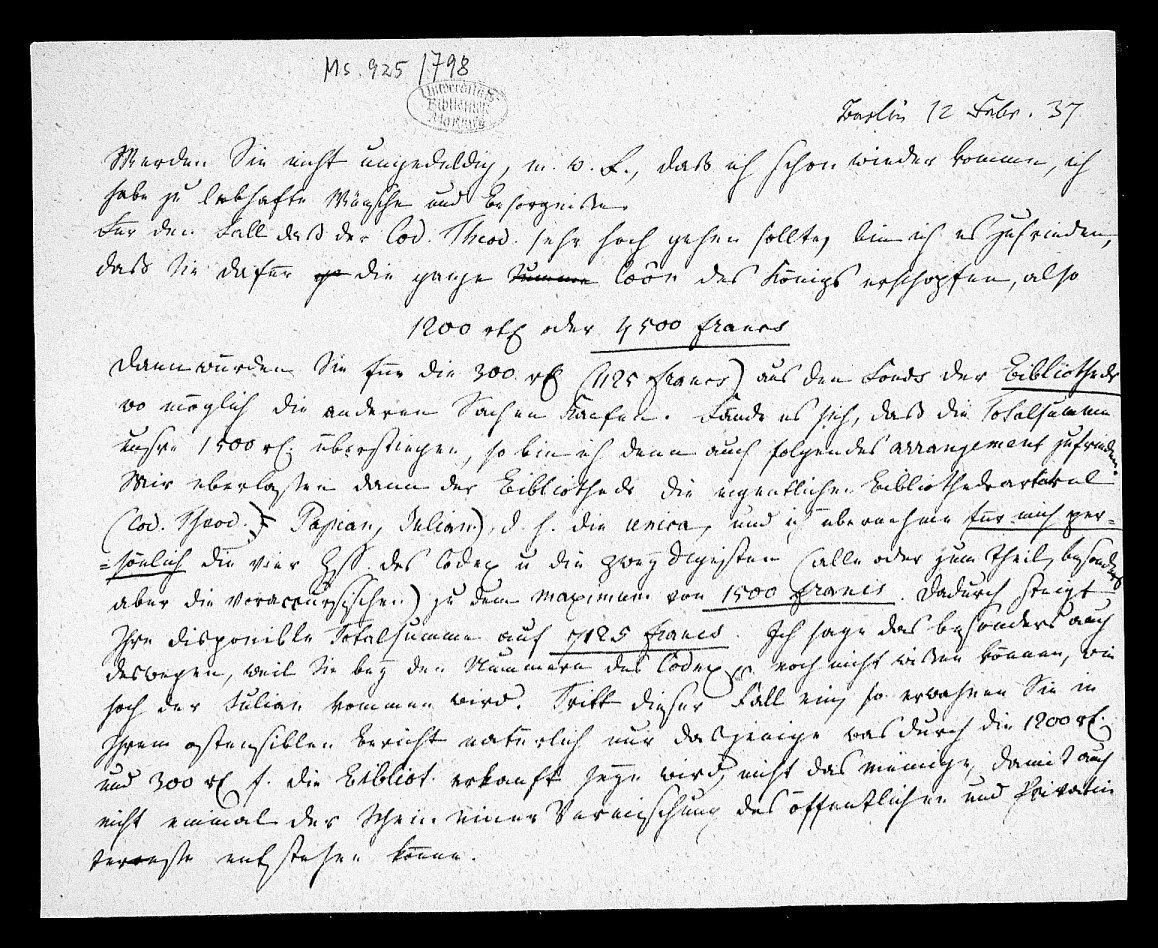 Ms. 925/1798
Universitäts-
Bibliothek
Marburg
Berlin 12 Febr. 37
Werden Sie nicht ungeduldig, m. v. F., daß ich schon wieder komme, ich
habe zu lebhafte Wünsche und Besorgnisse.
Für den Fall daß der Cod. Theod. sehr hoch gehen sollte, bin ich es zufrieden,
daß Sie dafür die ganze Summe des Königs erschöpfen, also
1200 rt oder 4500 francs
Dann würden Sie für die 300 rt (1125 francs) aus den Fonds der Bibliothek
wo möglich die anderen Sachen kaufen. Fände es sich, daß die Totalsumme
unsre 1500 rt. überstiegen, so bin ich denn auch folgendes arrangement zufrieden.
Wir überlassen dann der Bibliothek die eigentlichen Bibliothekartikel
(Cod. Theod., Papian, Julian), d. h. die unica, und ich übernehme für mich per-
=sönlich die vier Hss. des Codex u die zwey Digesten (alle oder zum Theil, besonders
aber die voraccursischen) zu dem maximum von 1500 francs. Dadurch steigt
Ihre disponible Totalsumme auf 7125 francs. Ich sage das besonders auch
deswegen, weil Sie bey den Nummern des Codex noch nicht wissen können, wie
hoch der Julian kommen wird. Tritt dieser Fall ein, so erwähnen Sie in
Ihrem ostensiblen Bericht natürlich nur dasjenige was durch die 1200 rt.
und 300 rt f. die Bibliot. erkauft seyn wird, nicht das meinige, damit auch
nicht einmal der Schein einer Vermischung des öffentlichen und Privatin
teresse entstehen könne.